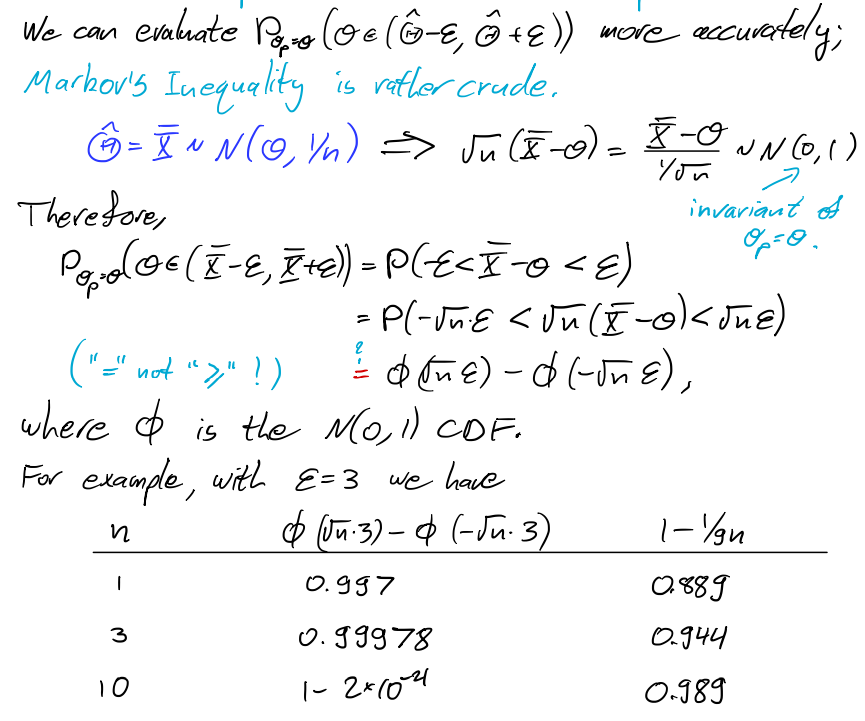 We can evaluate P_{θ_p=θ}(θ ∈ (Θ̂-ε, Θ̂+ε)) more accurately;
Markov's Inequality is rather crude.
Θ̂ = X̄ ~ N(θ, 1/n) ⟹ √n (X̄-θ) = (X̄-θ)/(1/√n) ~ N(0,1)
invariant of
θ_p=θ.
Therefore,
P_{θ_p=θ}(θ ∈ (X̄-ε, X̄+ε)) = P(-ε < X̄-θ < ε)
= P(-√n·ε < √n (X̄-θ) < √n ε)
("=" not "≥" !) = ϕ(√n ε) - ϕ(-√n ε),
where ϕ is the N(0,1) CDF.
For example, with ε=3 we have
n ϕ(√n·3) - ϕ(-√n·3) 1-1/9n
1 0.997 0.889
3 0.99978 0.944
10 1- 2*10^{-21} 0.989